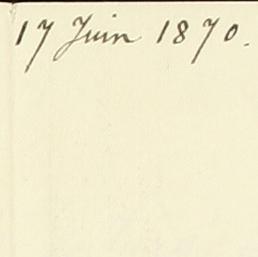 17 Juin 1870.